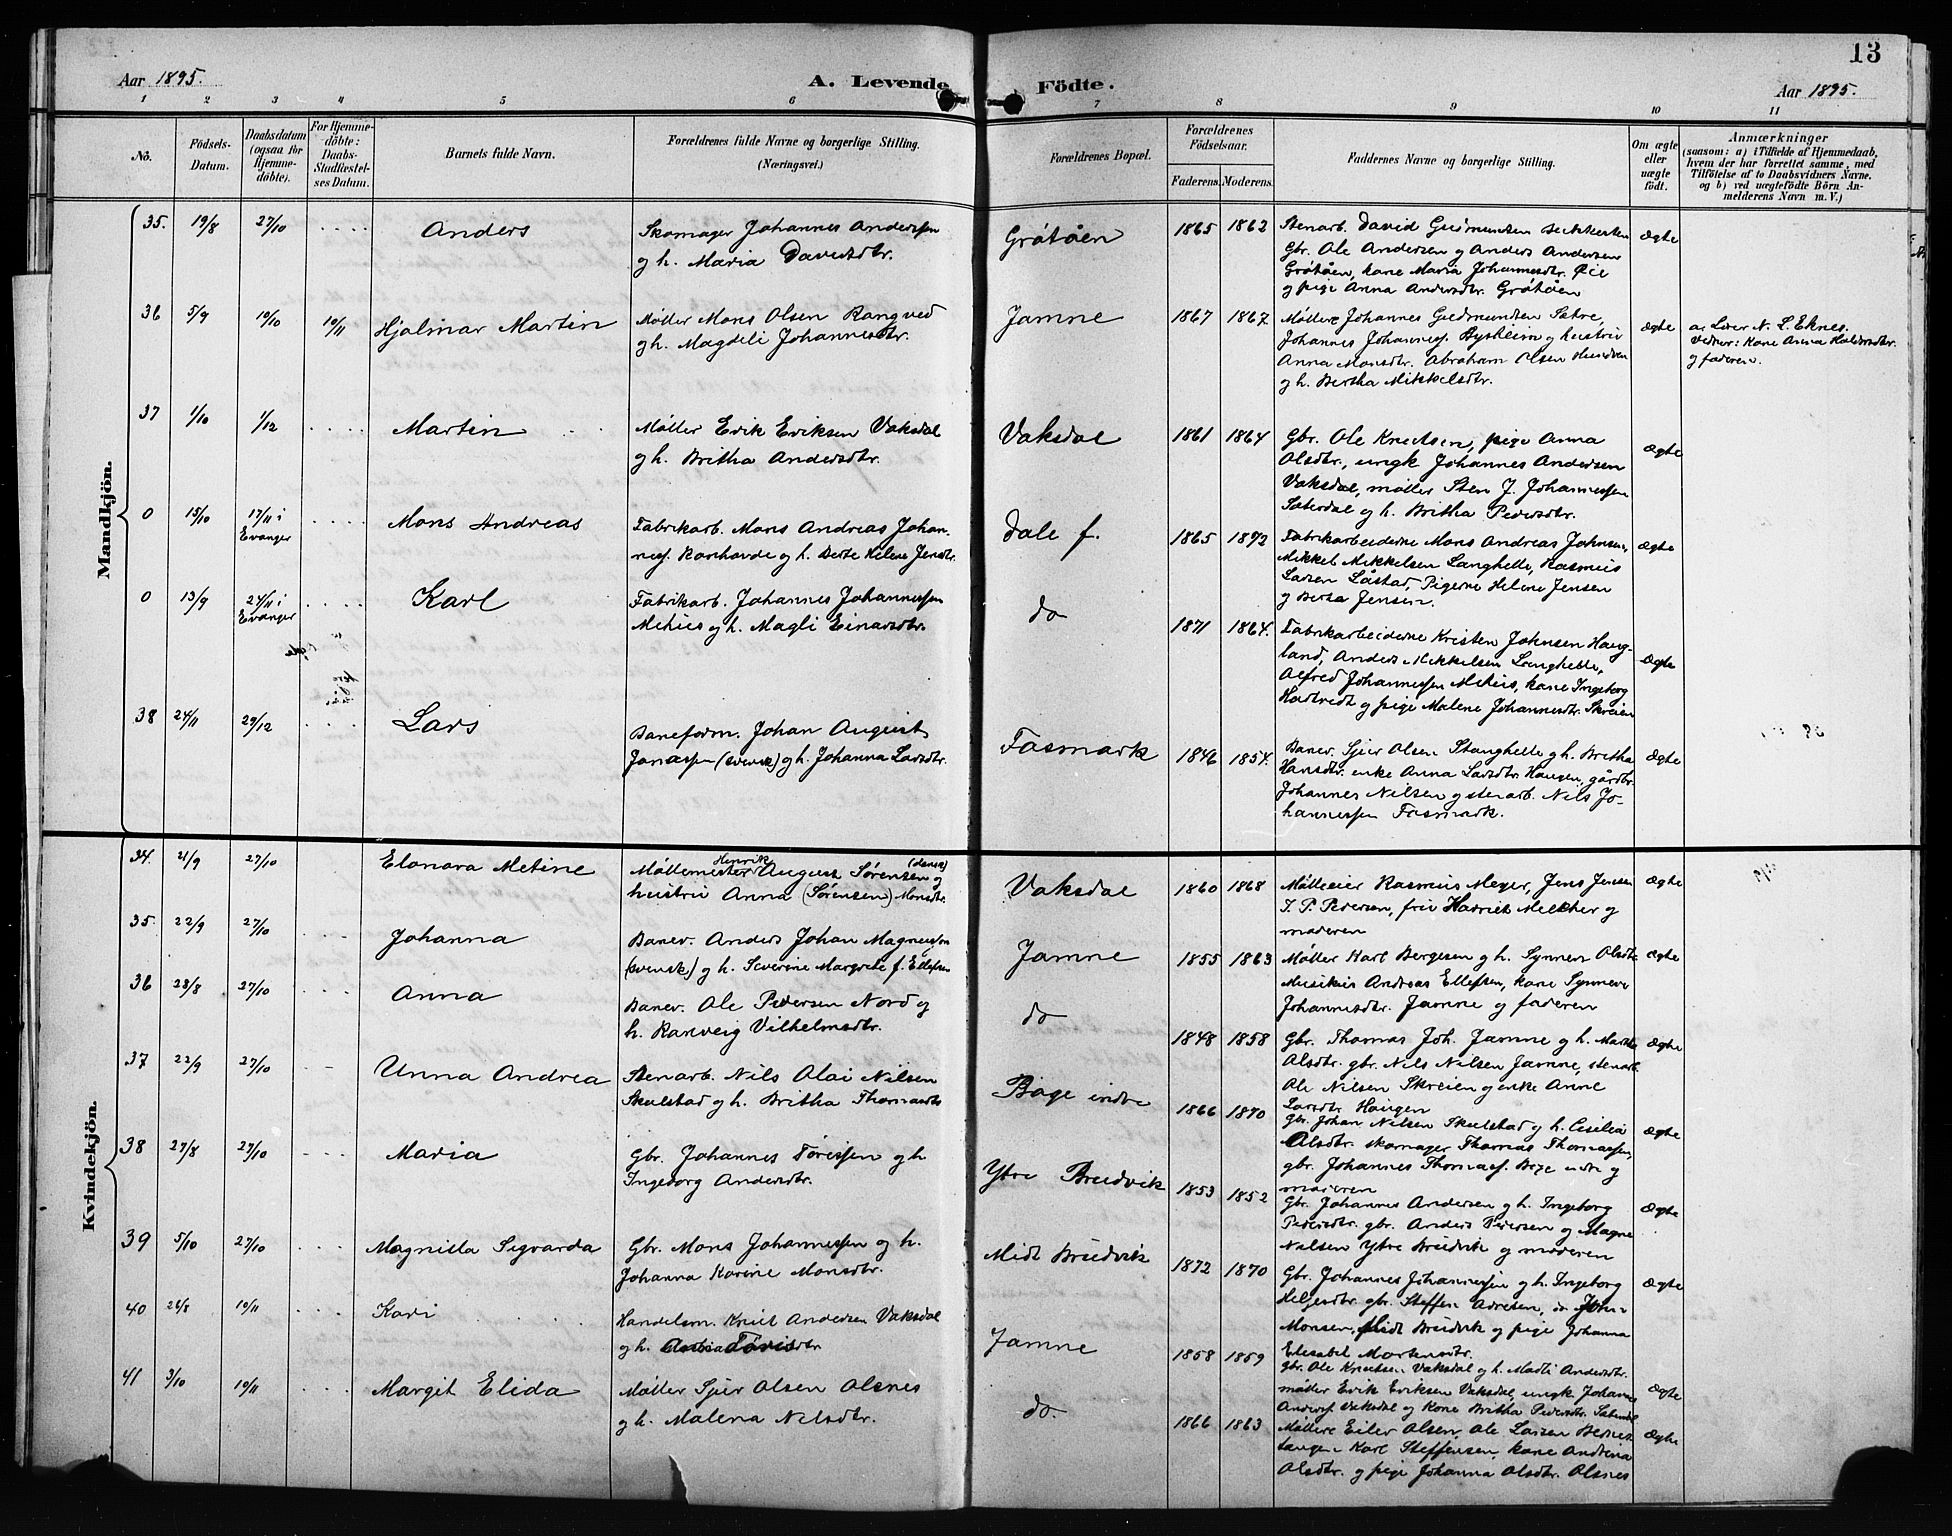 13
Aar 1895.
A. Levende Födte.
Aar 1895.
1 2 3 4 5 6 7 8 9 10 11
No.
Födsels-Datum.
Daabsdatum (ogsaa for Hjemme-döbte).
For Hjemme-döbte: Daabs-Stadfæstel-ses Datum.
Barnets fulde Navn.
Forældrenes fulde Navne og borgerlige Stilling.
(Næringsvei.)
Forældrenes Bopæl.
Forældrenes Födselsaar.
Faderens. Moderens.
Faddernes Navne og borgerlige Stilling.
Om ægte eller uægte födt.
Anmærkninger
(saasom: a) i Tilfælde af Hjemmedaab,
hvem der har forrettet samme, med
Tilföielse af to Daabsvidners Navne.
og b) ved uægtefödte Börn An-
melderens Navn m. V.)
Mandkjön.
35. 19/8 27/10 Anders
Skomager Johannes Anderssen
og h. Maria Davidsdtr.
Gråtåen 1865 1862
Stenarb. David Gudmundsen
Gbr. Ole Andersen og Anders Andersen
Gråtåen, kone Maria Johannesdtr.
og pige Anna Andersdtr. Gråtåen
ægte
36 5/9 10/10 10/11 Hjalmar Martin
Møller Mons Olsen Rangved
og h. Magdeli Johannesdtr.
Jamne 1867 1867
Møllere Johannes Gudmundsen Sætre,
Johannes Johannes. Bysheim og hustru
Anna Monsdtr. Abraham Olsen
og h. Bertha Mikkelsdtr.
ægte
a. Lærer N. L. Eknes.
Vidner: Kone Anna Haldorsdtr.
og faderen.
37 1/10 1/12 Martin
Møller Erik Eriksen Vaksdal
og h. Britha Andersdtr.
Vaksdal 1861 1864
Gbr. Ole Knutsen, pige Anna
Olsdtr., ungk. Johannes Andersen
Vaksdal, møller Sten J. Johannessen
Sæterdal og h. Britha Pedersdtr.
ægte
0 15/10 17/11 i Evanger Mons Andreas
Fabrikarb. Mons Andreas Johan-
nes. Ramhavde og h. Berte Helene Jensdtr.
Dale f. 1865 1872
Fabrikarbeiderne Mons Andreas Johnsen,
Mikkel Mikkelsen Langhelle, Rasmus
Larsen Låstad, Pigerne Helene Jensen
og Berta Jensen.
ægte
0 13/9 24/11 i Evanger Karl
Fabrikarb. Johannes Johannessen
Mehus og h. Magli Einarsdtr.
do 1871 1864.
Fabrikarbeiderne Kristen Johnsen Haug-
land, Anders Mikkelsen Langhelle,
Alfred Johannessen Mehus, kone Ingeborg
Hadtvedt og pige Malene Johannesdtr. Skreien
ægte
38 24/11 29/12 Lars
Baneform. Johan August
Jonassen (svensk) og h. Johanna Larsdtr.
Fosmark 1846 1854.
Banev. Sjur Olsen Stanghelle og h. Britha
Hansdtr. enke Anna Larsdtr. Haugen, gårdbr.
Johannes Nilsen og stenarb. Nils Jo-
hannessen Fosmark.
ægte
Kvindekjön.
34. 21/9 27/10 Elonora Metine
Møllemester Henrik August Sørensen (dansk) og
hustru Anna (Sørensen) Monsdtr.
Vaksdal 1860 1868
Mølleeier Rasmus Meyer, Jens Jensen
I. P. Pedersen, fru Harriet Melther og
moderen
ægte
35. 22/9 27/10 Johanna
Banev. Anders Johan Magnussen
(svensk) og h. Severine Margrete f. Ellefsen
Jamne 1855 1863
Møller Karl Bergesen og h. Synneve Olsdtr.
Musikus Andreas Ellefsen, kone Synneve
Johannesdtr. Jamne og faderen
ægte
36 28/8 27/10 Anna
Banev. Ole Pedersen Nord og
h. Ranveig Vilhelmsdtr.
do 1848 1858
Gbr. Thomas Joh. Jamne og h. Martha
Olsdtr. gbr. Nils Nilsen Jamne, stenarb.
Ole Nilsen Skreien og enke Anne
Larsdtr Haugen
ægte
37 22/9 27/10 Unna Andrea
Stenarb. Nils Olai Nilsen
Skulstad og h. Britha Thomasdtr
Boge indre 1866 1870
Gbr. Johan Nilsen Skulstad og h. Cesilia
Olsdtr. skomager Thomas Thomassen,
gbr. Johannes Thomass. Boge indre og
moderen
ægte
38 27/8 27/10 Maria
Gbr. Johannes Tørissen og h
Ingeborg Andersdtr.
Ytre Breidvik 1853 1852
Gbr. Johannes Andersen og h. Ingeborg
Pedersdtr. gbr. Anders Pedersen og Magne
Nilsen Ytre Breidvik og moderen
ægte
39 5/10 27/10 Magnilla Sigvarda
Gbr. Mons Johannessen og h.
Johanna Karine Monsdtr.
Midt Breidvik 1872 1870
Gbr. Johannes Johannessen og h. Ingeborg
Helgesdtr. gbr. Steffen
Monsen, Midt Breidvik og pige Johanna
Elisabet Mortensdtr.
ægte
40 26/8 10/11 Kari
Handelsm. Knut Andersen Vaksdal
og h. Tørisdtr
Jamne 1858 1859
gbr. Ole Knutsen Vaksdal og h. Madli Andersdtr.
møller Erik Eriksen Vaksdal, ungk. Johannes
Anders. Vaksdal og kone Britha Pedersdtr. Sæterdal
ægte
41 3/10 10/11 Margit Elida
Møller Sjur Olsen Olsnes
og h. Malena Nilsdtr.
do. 1866 1863
Møllere Eiler Olsen, Ole Larsen Bernes
tangen Karl Steffensen, kone Andrina
Olsdtr. og pige Johanna Olsdtr. Olsnes
ægte